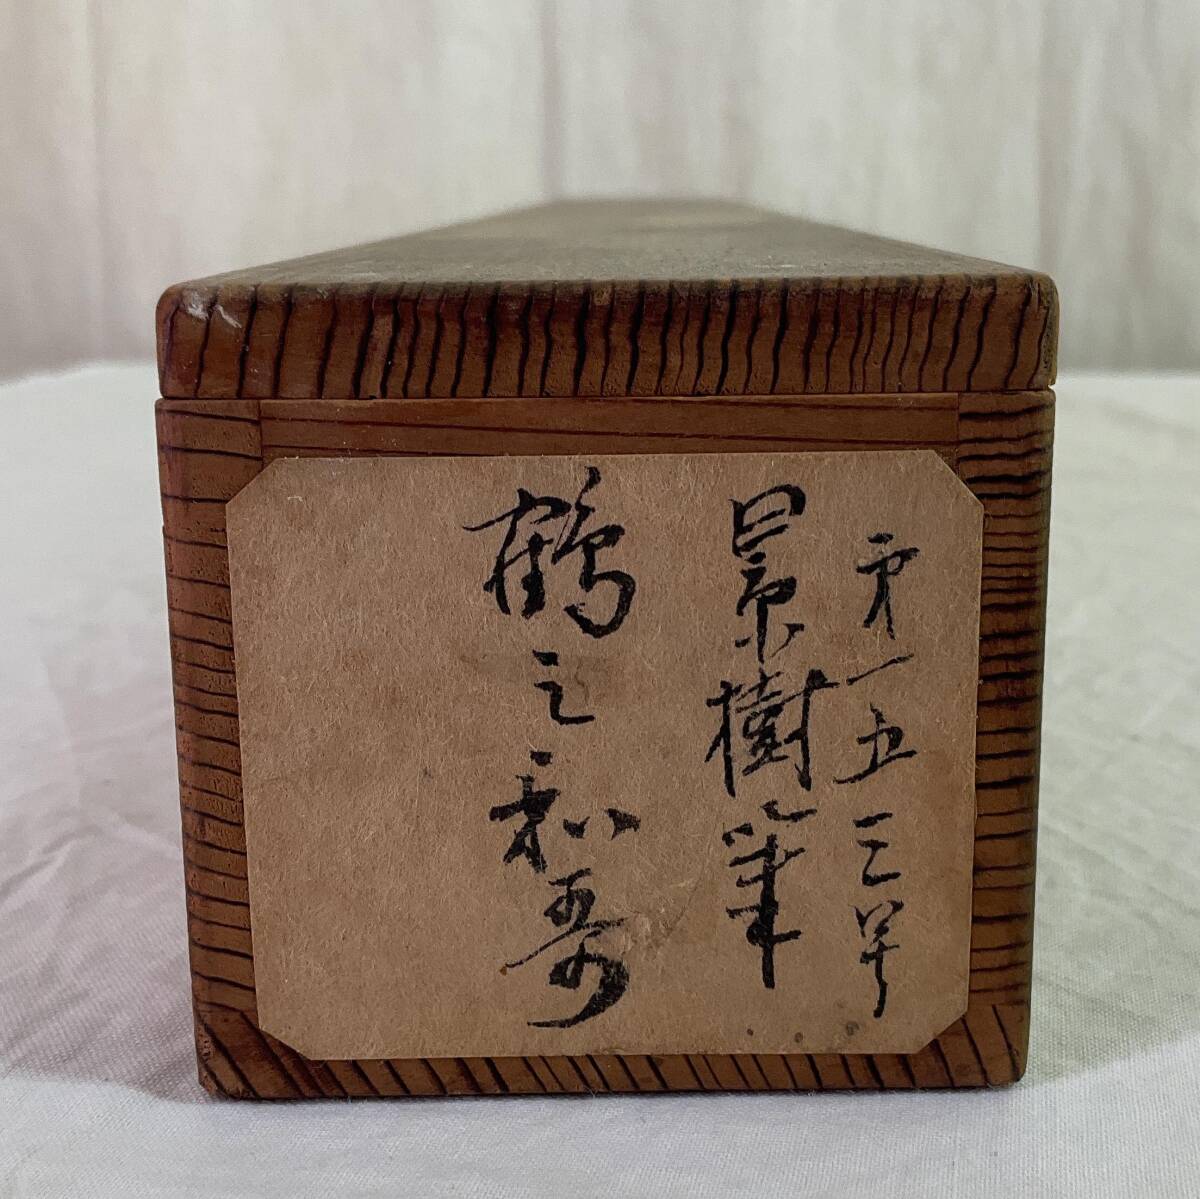 第一五三号
景樹筆
鶴之和歌